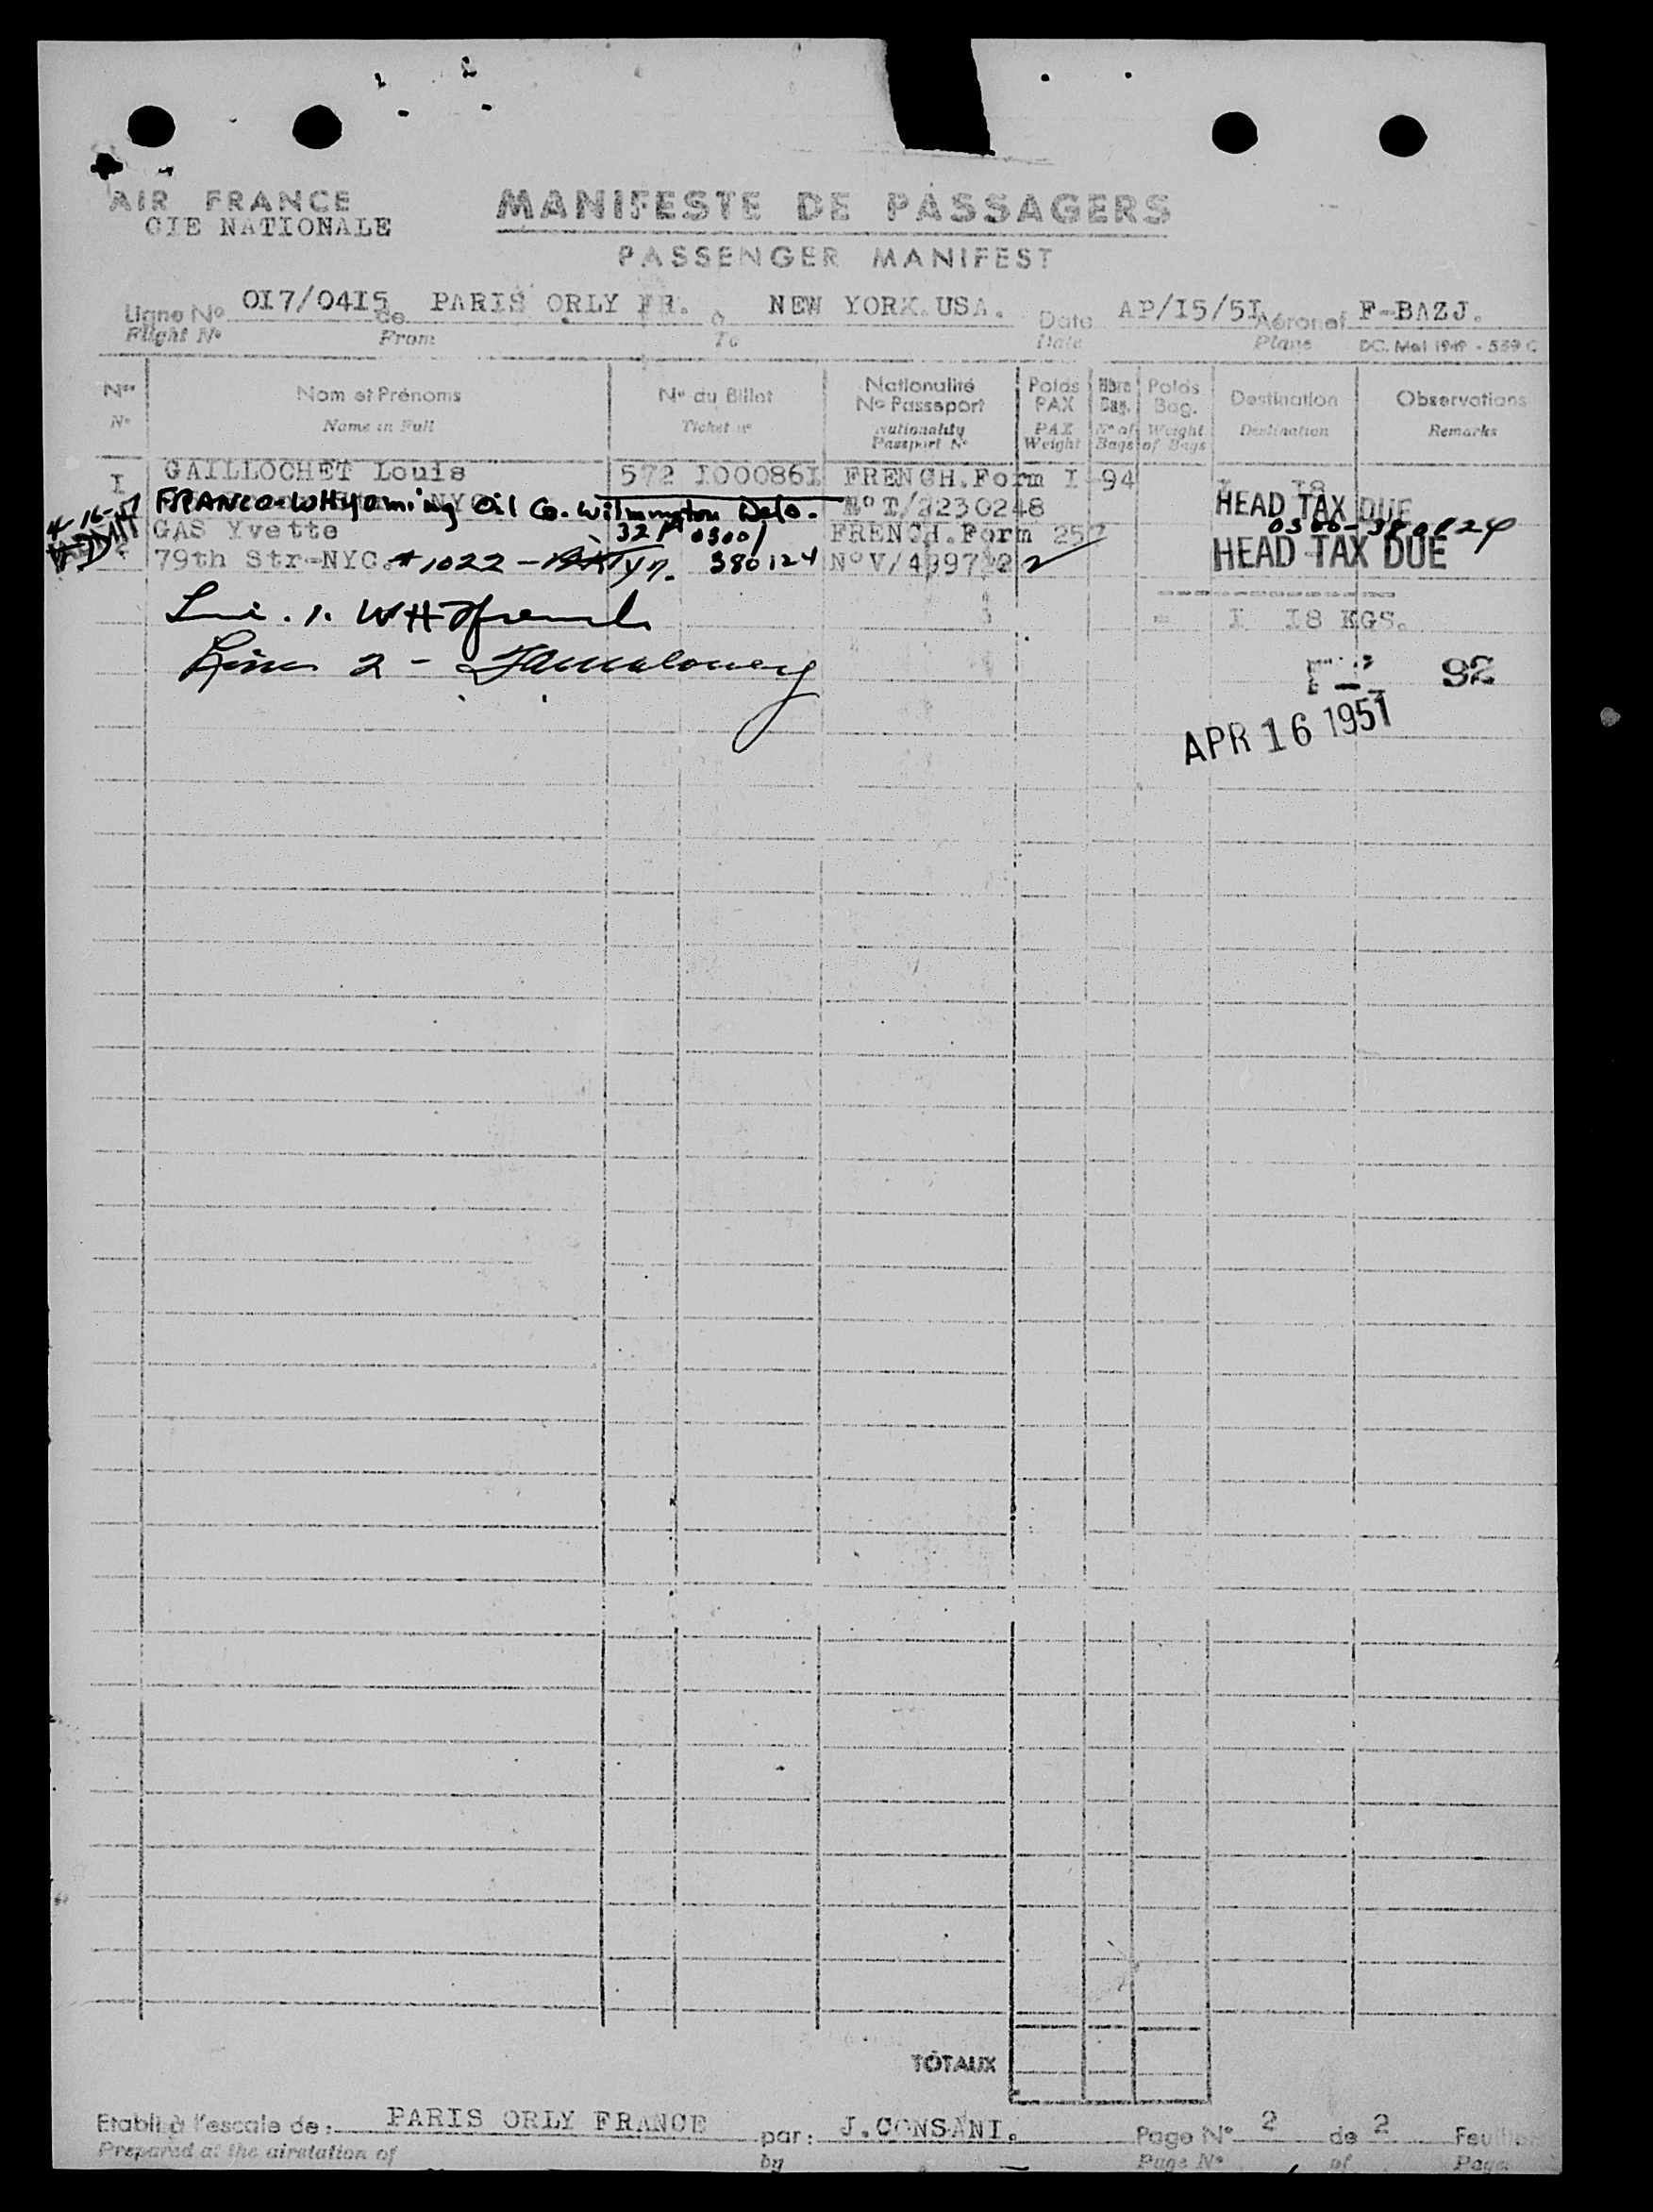 AIR FRANCE
CIE NATIONALE
MANIFESTE DE PASSAGERS
PASSENGER MANIFEST
Ligne No OI7/04I5 de PARIS ORLY FR. à NEW YORK.USA. Date AP/I5/5I Aéronef F-BAZJ.
Flight No From To Date Plane DC. Mai 1949 - 539 C
Nos Nom et Prénoms No du Billet Nationalité No Passeport Poids PAX Nbre Bag. Poids Bag. Destination Observations
No Name in Full Ticket no Nationality Passport No PAX Weight No of Bags Weight of Bags Destination Remarks
I GAILLOCHET Louis 572 I00086I FRENCH.Form I-94 I I8
FRANCO-WHyoming Oil Co. Wilmington Delo. NoT/2230248 HEAD TAX DUE
4-16-51 GAS Yvette 0300/ FRENCH.Form 257 0300-380124
79th Str-NYC. #1022 - 380124 NoV/ HEAD TAX DUE
= I I8 KGS.
Line 2 -
92
APR 16 1951
TOTAUX
Etabli à l'escale de: PARIS ORLY FRANCE par: J.CONSANI. Page No 2 de 2
Prepared at the airstation of by Page No of Page